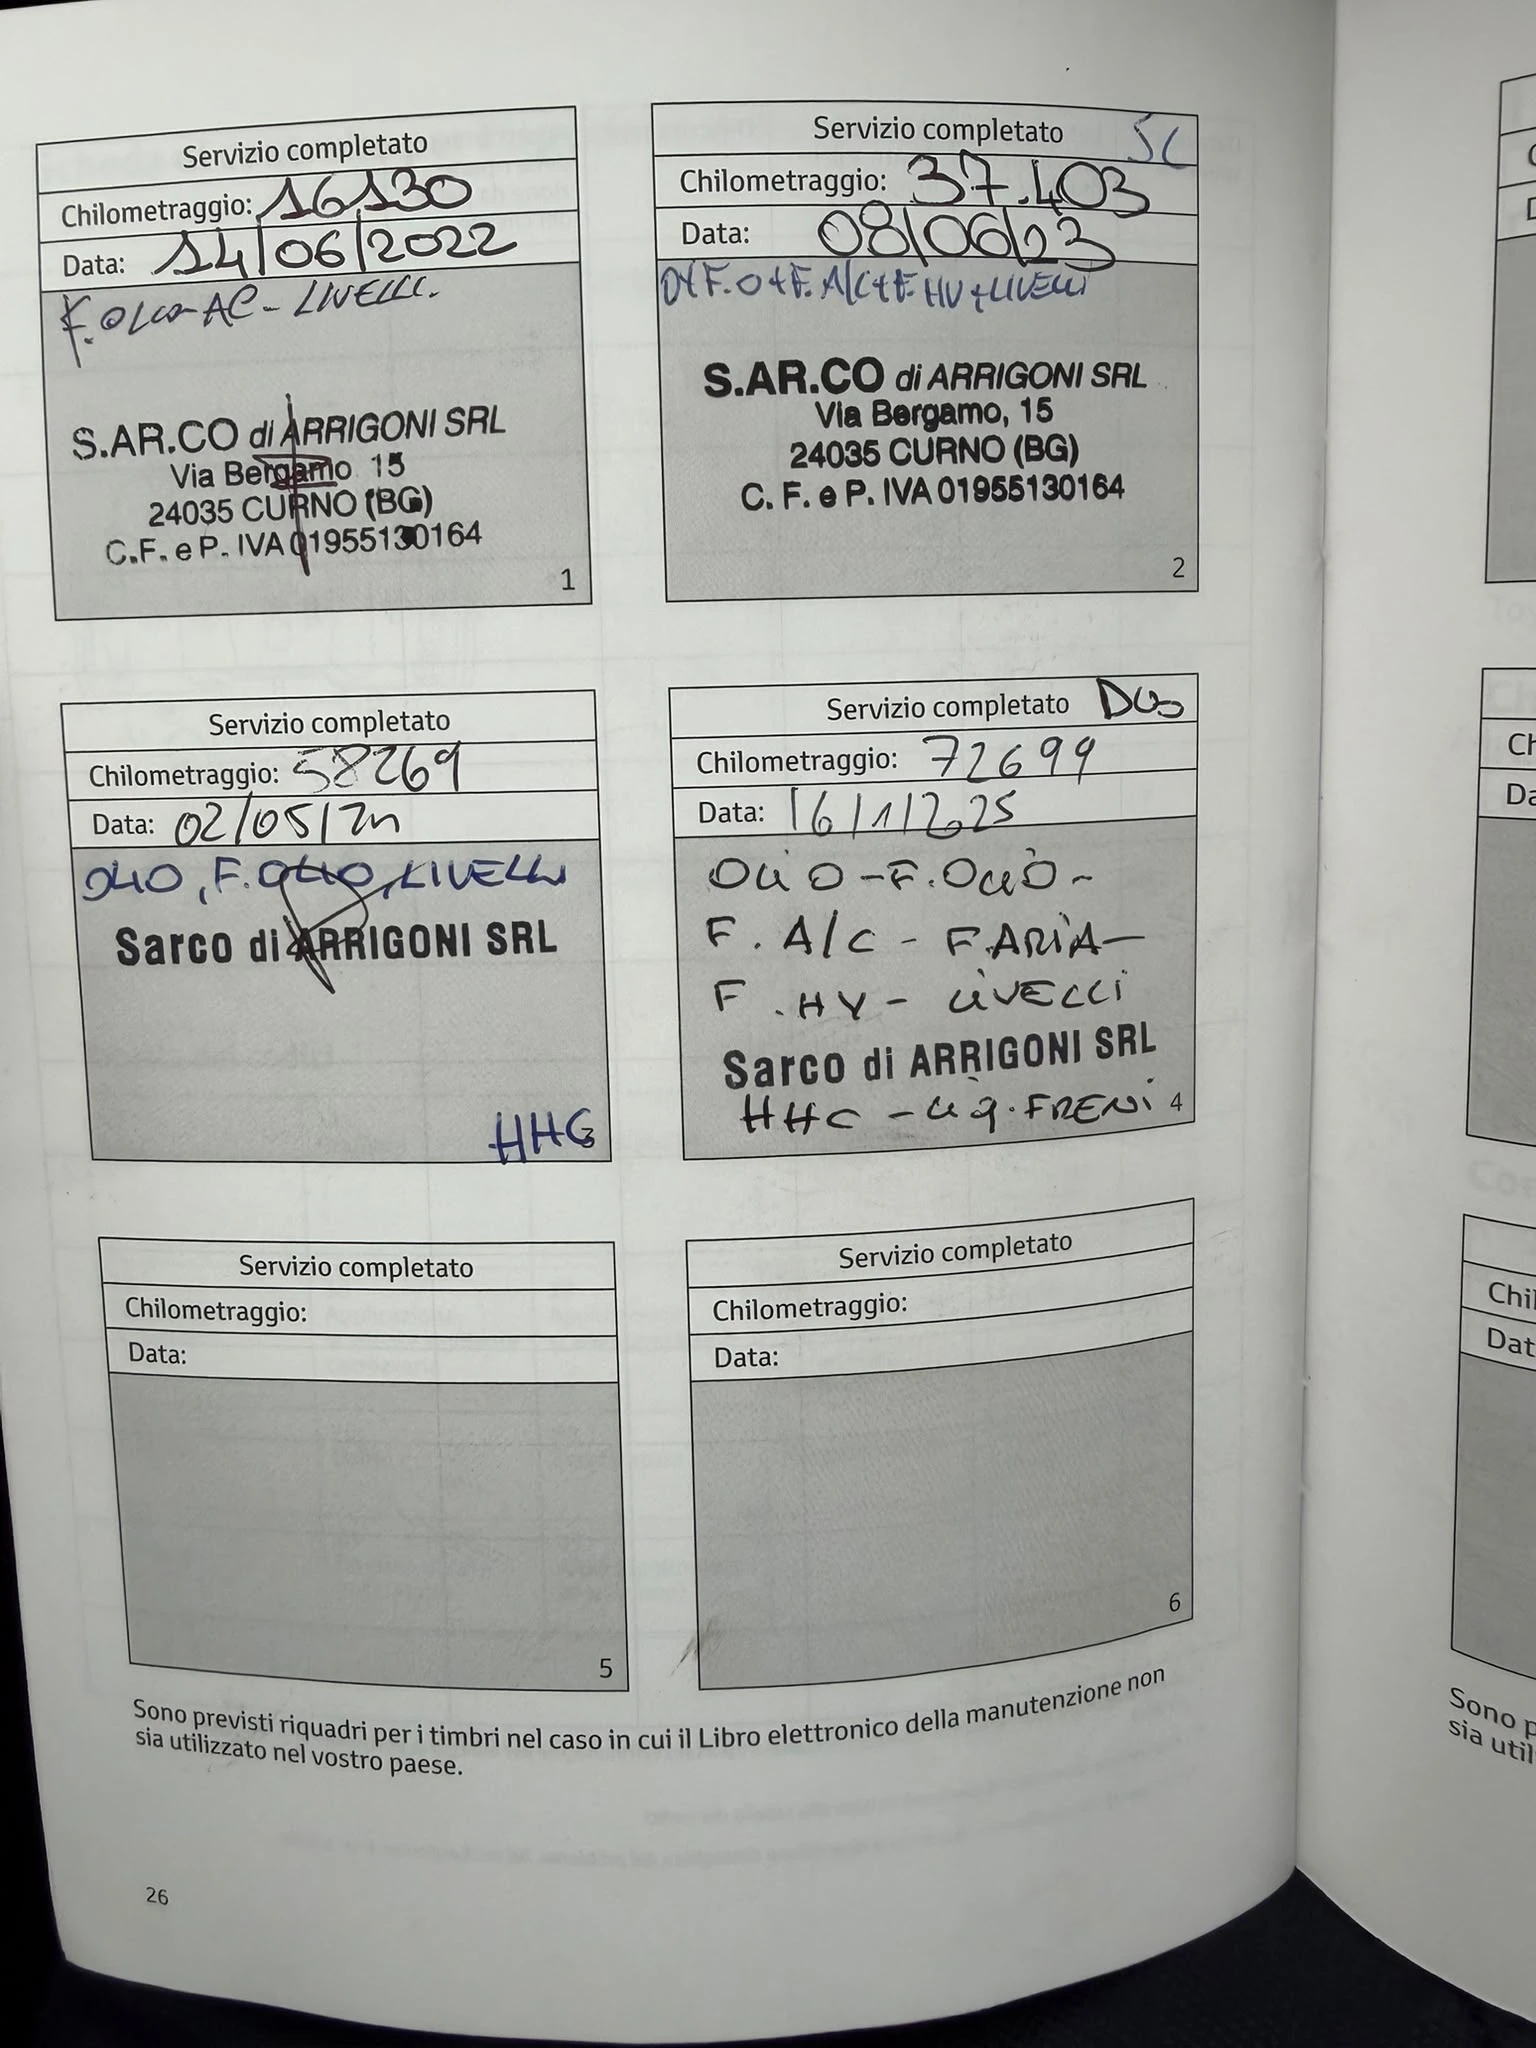 Servizio completato
Chilometraggio: 16130
Data: 14/06/2022
AC - LIVELLI.
S.AR.CO di ARRIGONI SRL
Via Bergamo 15
24035 CURNO (BG)
C.F. e P. IVA 01955130164
1
Servizio completato
Chilometraggio: 37.403
Data: 08/06/23
O+F.O+F.A/C+F.HV+LIVELLI
S.AR.CO di ARRIGONI SRL
Via Bergamo, 15
24035 CURNO (BG)
C. F. e P. IVA 01955130164
2
Servizio completato
Chilometraggio: 58269
Data: 02/05/24
OLIO, F. OLIO, LIVELLI
Sarco di ARRIGONI SRL
HHC
Servizio completato
Chilometraggio: 72699
Data: 16/1/2025
OLIO - F. OLIO -
F. A/C - F. ARIA -
F. HV - LIVELLI
Sarco di ARRIGONI SRL
HHC - LIQ. FRENI 4
Servizio completato
Chilometraggio:
Data:
5
Servizio completato
Chilometraggio:
Data:
6
Sono previsti riquadri per i timbri nel caso in cui il Libro elettronico della manutenzione non
sia utilizzato nel vostro paese.
26
Sono
sia